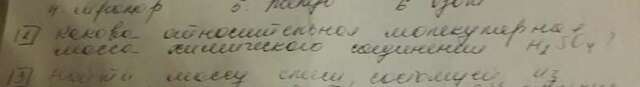 6 озон
2 Какова относительная молекулярная
масса химического соединения H₂SO₄?
3 Найти массу смеси, состоящей из